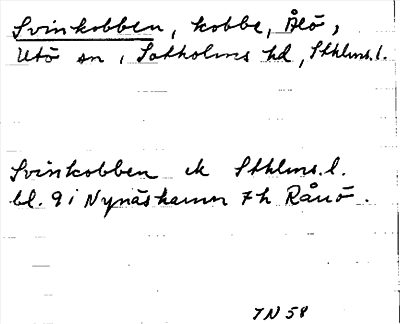 Svinkobben, kobbe, Ålö,
Utö sn, Sotholms hd, Sthlms.l.
Svinkobben ek Sthlms.l.
bl. 9 i Nynäshamn 7h Rånö.
7N58